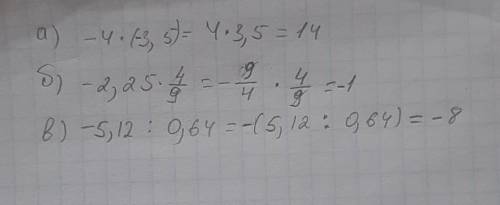 а) -4·(-3,5)= 4·3,5=14
б) -2,25·4/9=-9/4·4/9=-1
в) -5,12:0,64=-(5,12:0,64)=-8